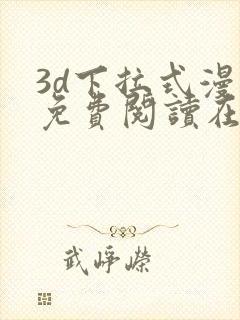 3d下拉式漫
免費閱讀在
武崢嶸